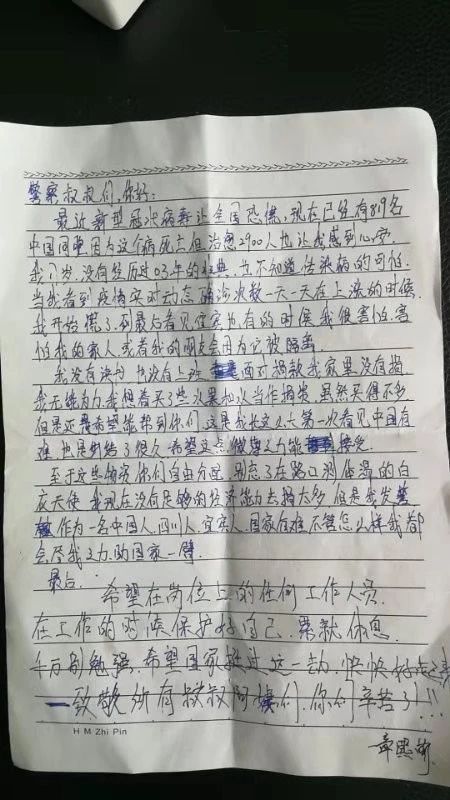 警察叔叔们,你好:
最近新型冠状病毒让全国恐慌,现在已经有819名
中国同胞因为这个病死亡但治愈2900人也让我感到心安,
我 岁,没有经历过03年的 也不知道传染病的可怕.
当我看到疫情实时动态 确诊次数一天一天在上涨的时候.
我开始慌了.到最后看见宜宾也有的时候我很害怕.害
怕我的家人或者我的朋友会因为它被隔离
我没有 也没有上班 面对捐款我家里没有捐
我无能为力.我想着买了些水果 当作捐赠,虽然买得不多
但是还是希望能帮到你们,这是我长这么大第一次看见中国有
难,也是 了很久.希望这点微薄之力能 接受.
至于这些物资你们自由分 别忘了在路口测体温的白
衣天使 我现在没有足够的经济能力去捐太多 但是我发誓
作为一名中国人,四川人,宜宾人.国家有难不管怎么样我都
会尽我之力.助国家一臂.
最后.
希望在岗位上的任何工作人员.
在工作的时候保护好自己.累就休息
千万别勉强,希望国家挺过这一劫,快快
致敬所有叔叔阿姨们,你们辛苦了!!!
H M Zhi Pin
章熙